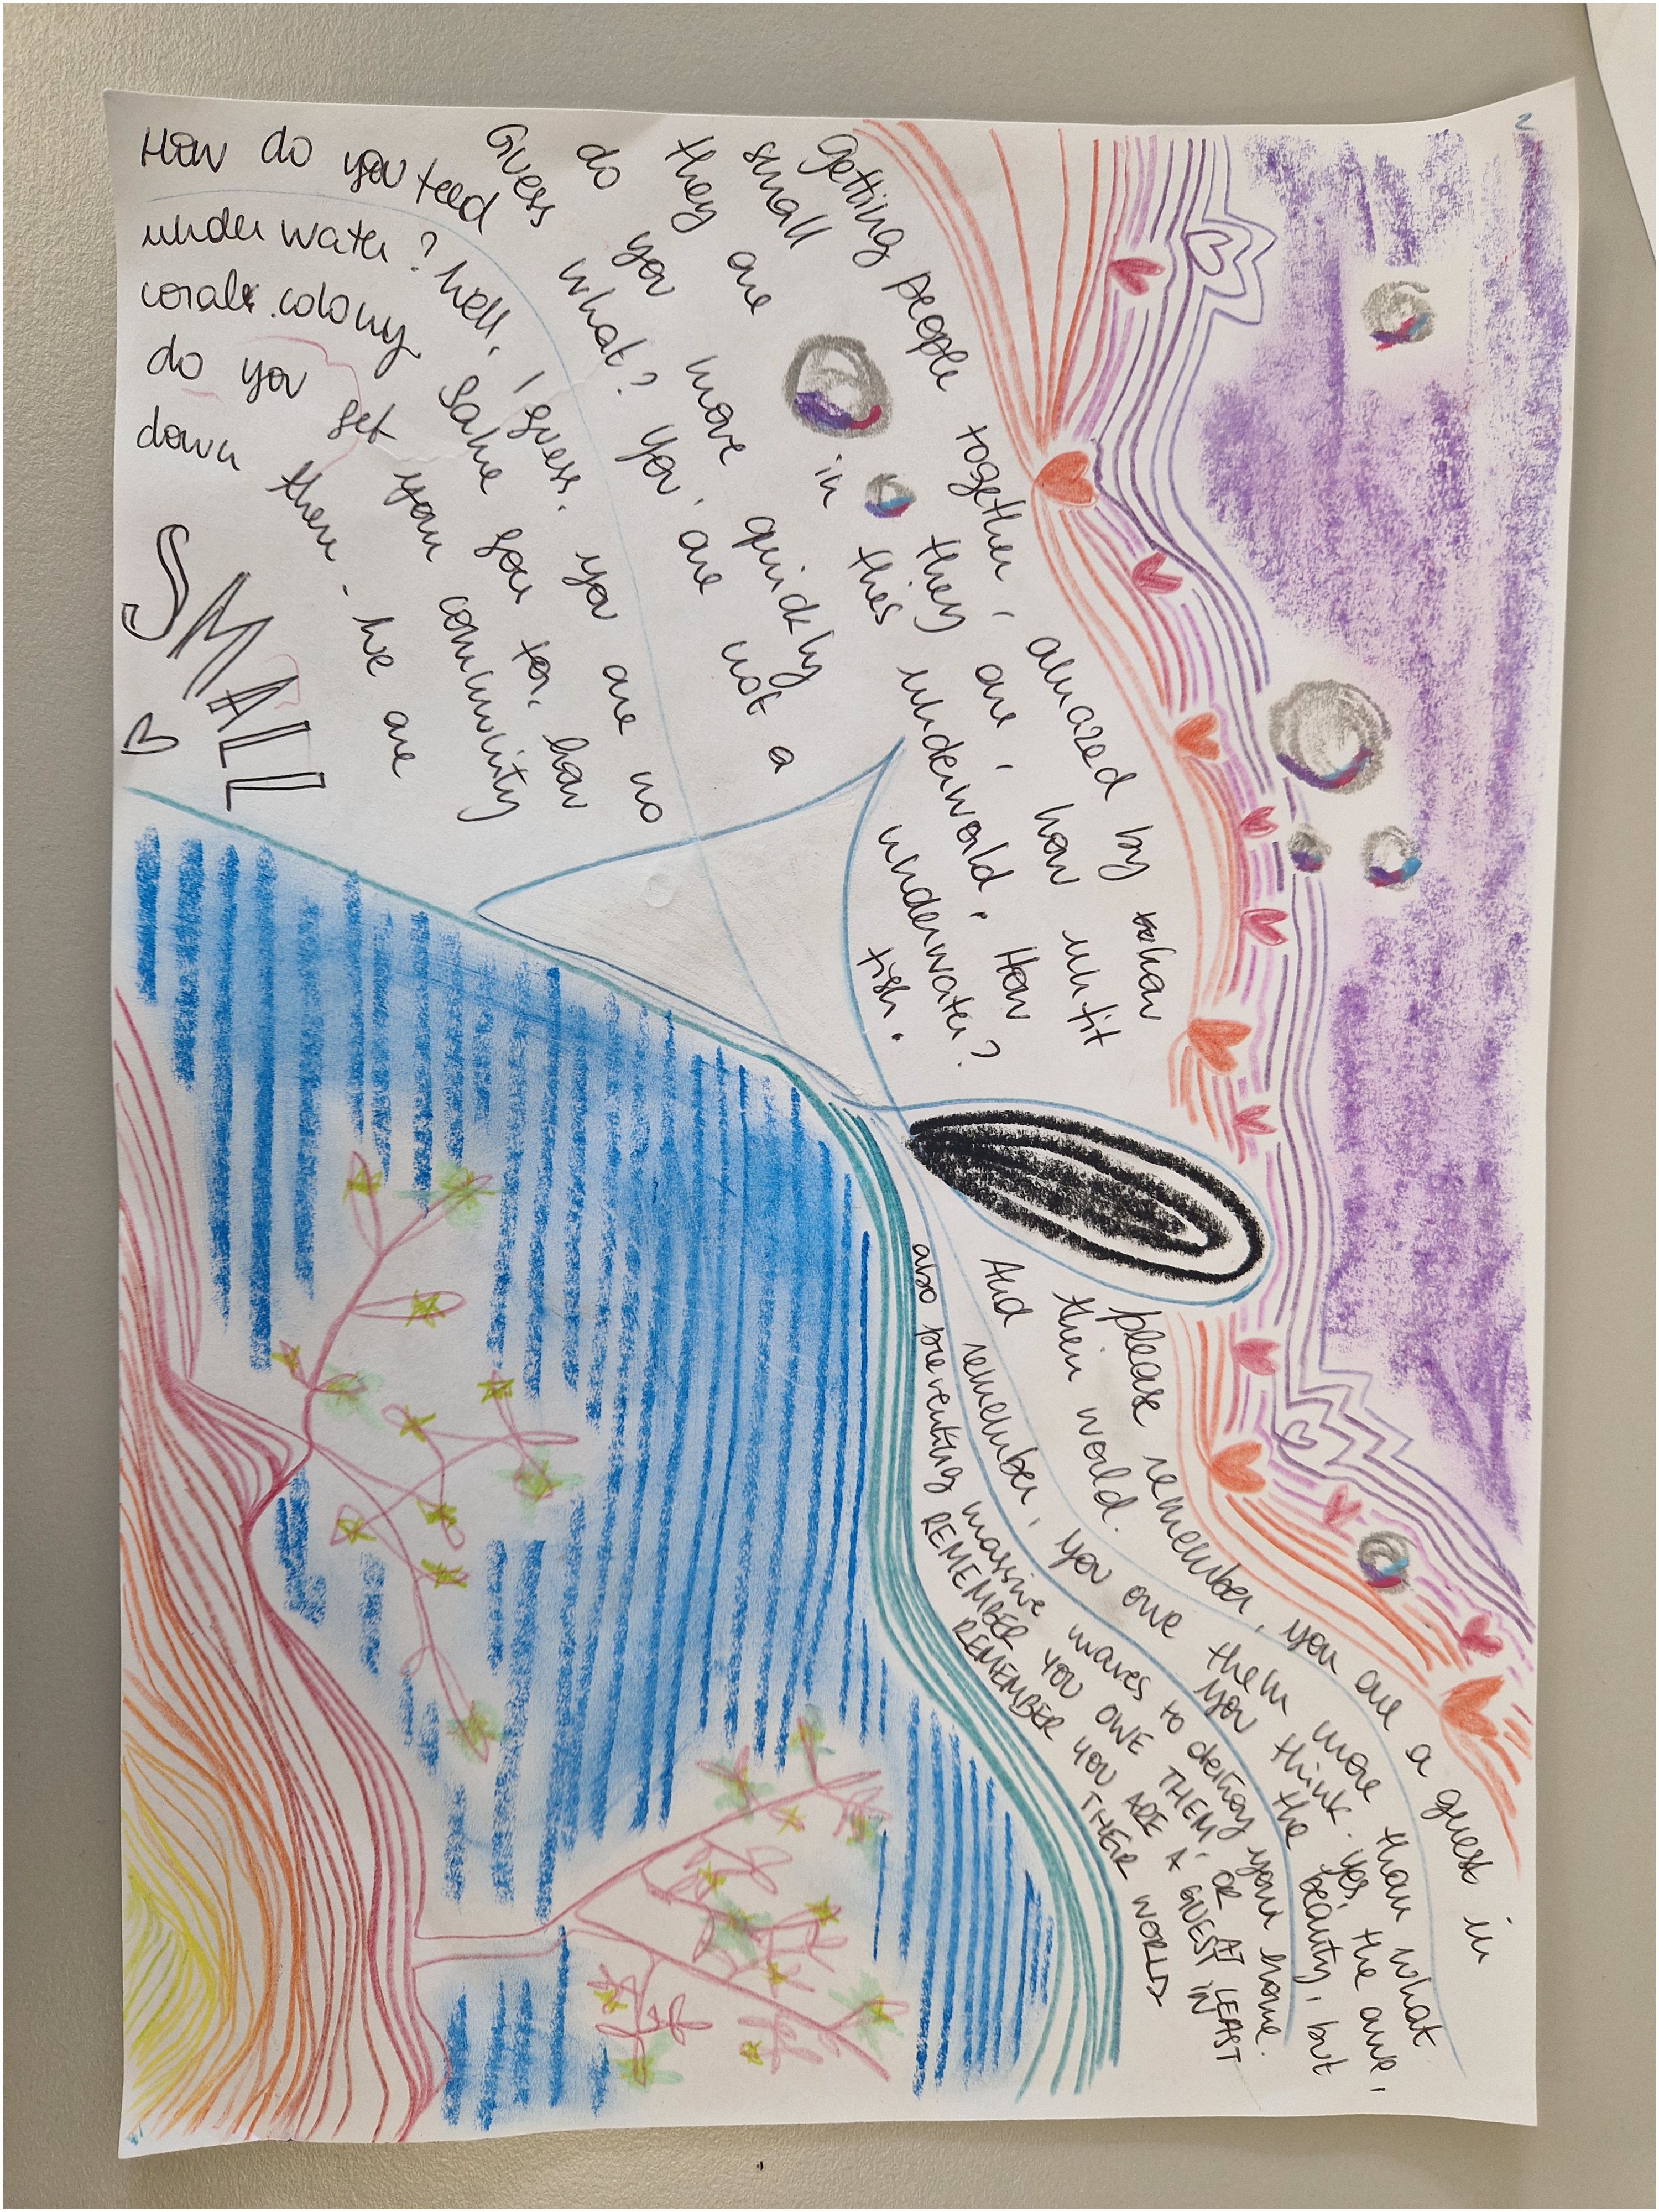 Getting people together, amazed by how
small they are, how unfit
they are in this underworld. How
do you move quickly underwater?
Guess what? You, are not a fish.
How do you feed
underwater? Well, I guess, you are no
coral colony. Same you for, how
do you get your community
down there. We are
SMALL
please remember, you are a guest in
their world.
And remember, you owe them more than what
you think. Yes, the awe,
the beauty, but
also preventing massive waves to destroy your home.
REMEMBER YOU OWE THEM, OR AT LEAST
REMEMBER YOU ARE A GUEST IN
THEIR WORLD